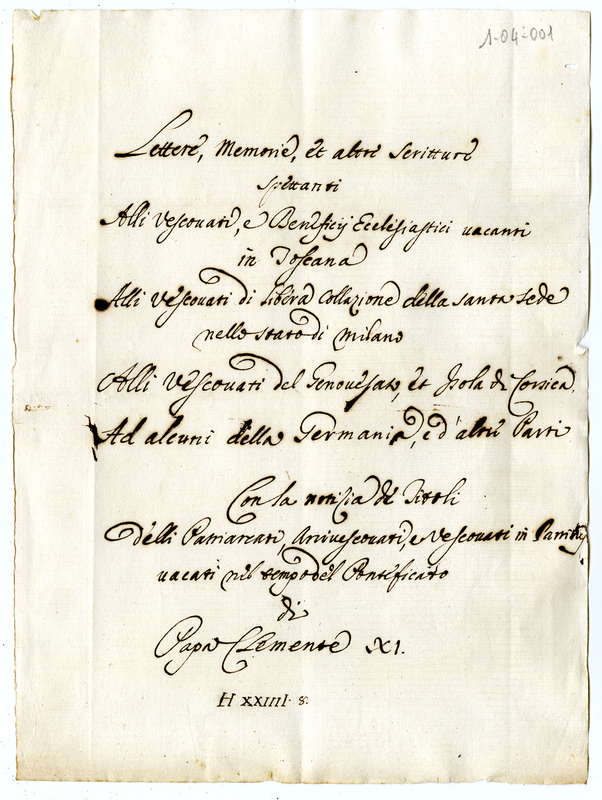 1-04-001
Lettere, Memorie, et altre scritture
spettanti
Alli Vescovati, e Beneficij Ecclesiastici vacanti
in Toscana
Alli Vescovati di libera Collazione della santa sede
nello stato di Milano
Alli Vescovati del Genovesato, et Isola di Corsica,
Ad alcuni della Germania, e d'altre Parti
Con la notizia de Titoli
delli Patriarcati, Arcivescovati, e Vescovati in Partibus
vacati nel tempo del Pontificato
di
Papa Clemente XI.
H XXIIII. 8.